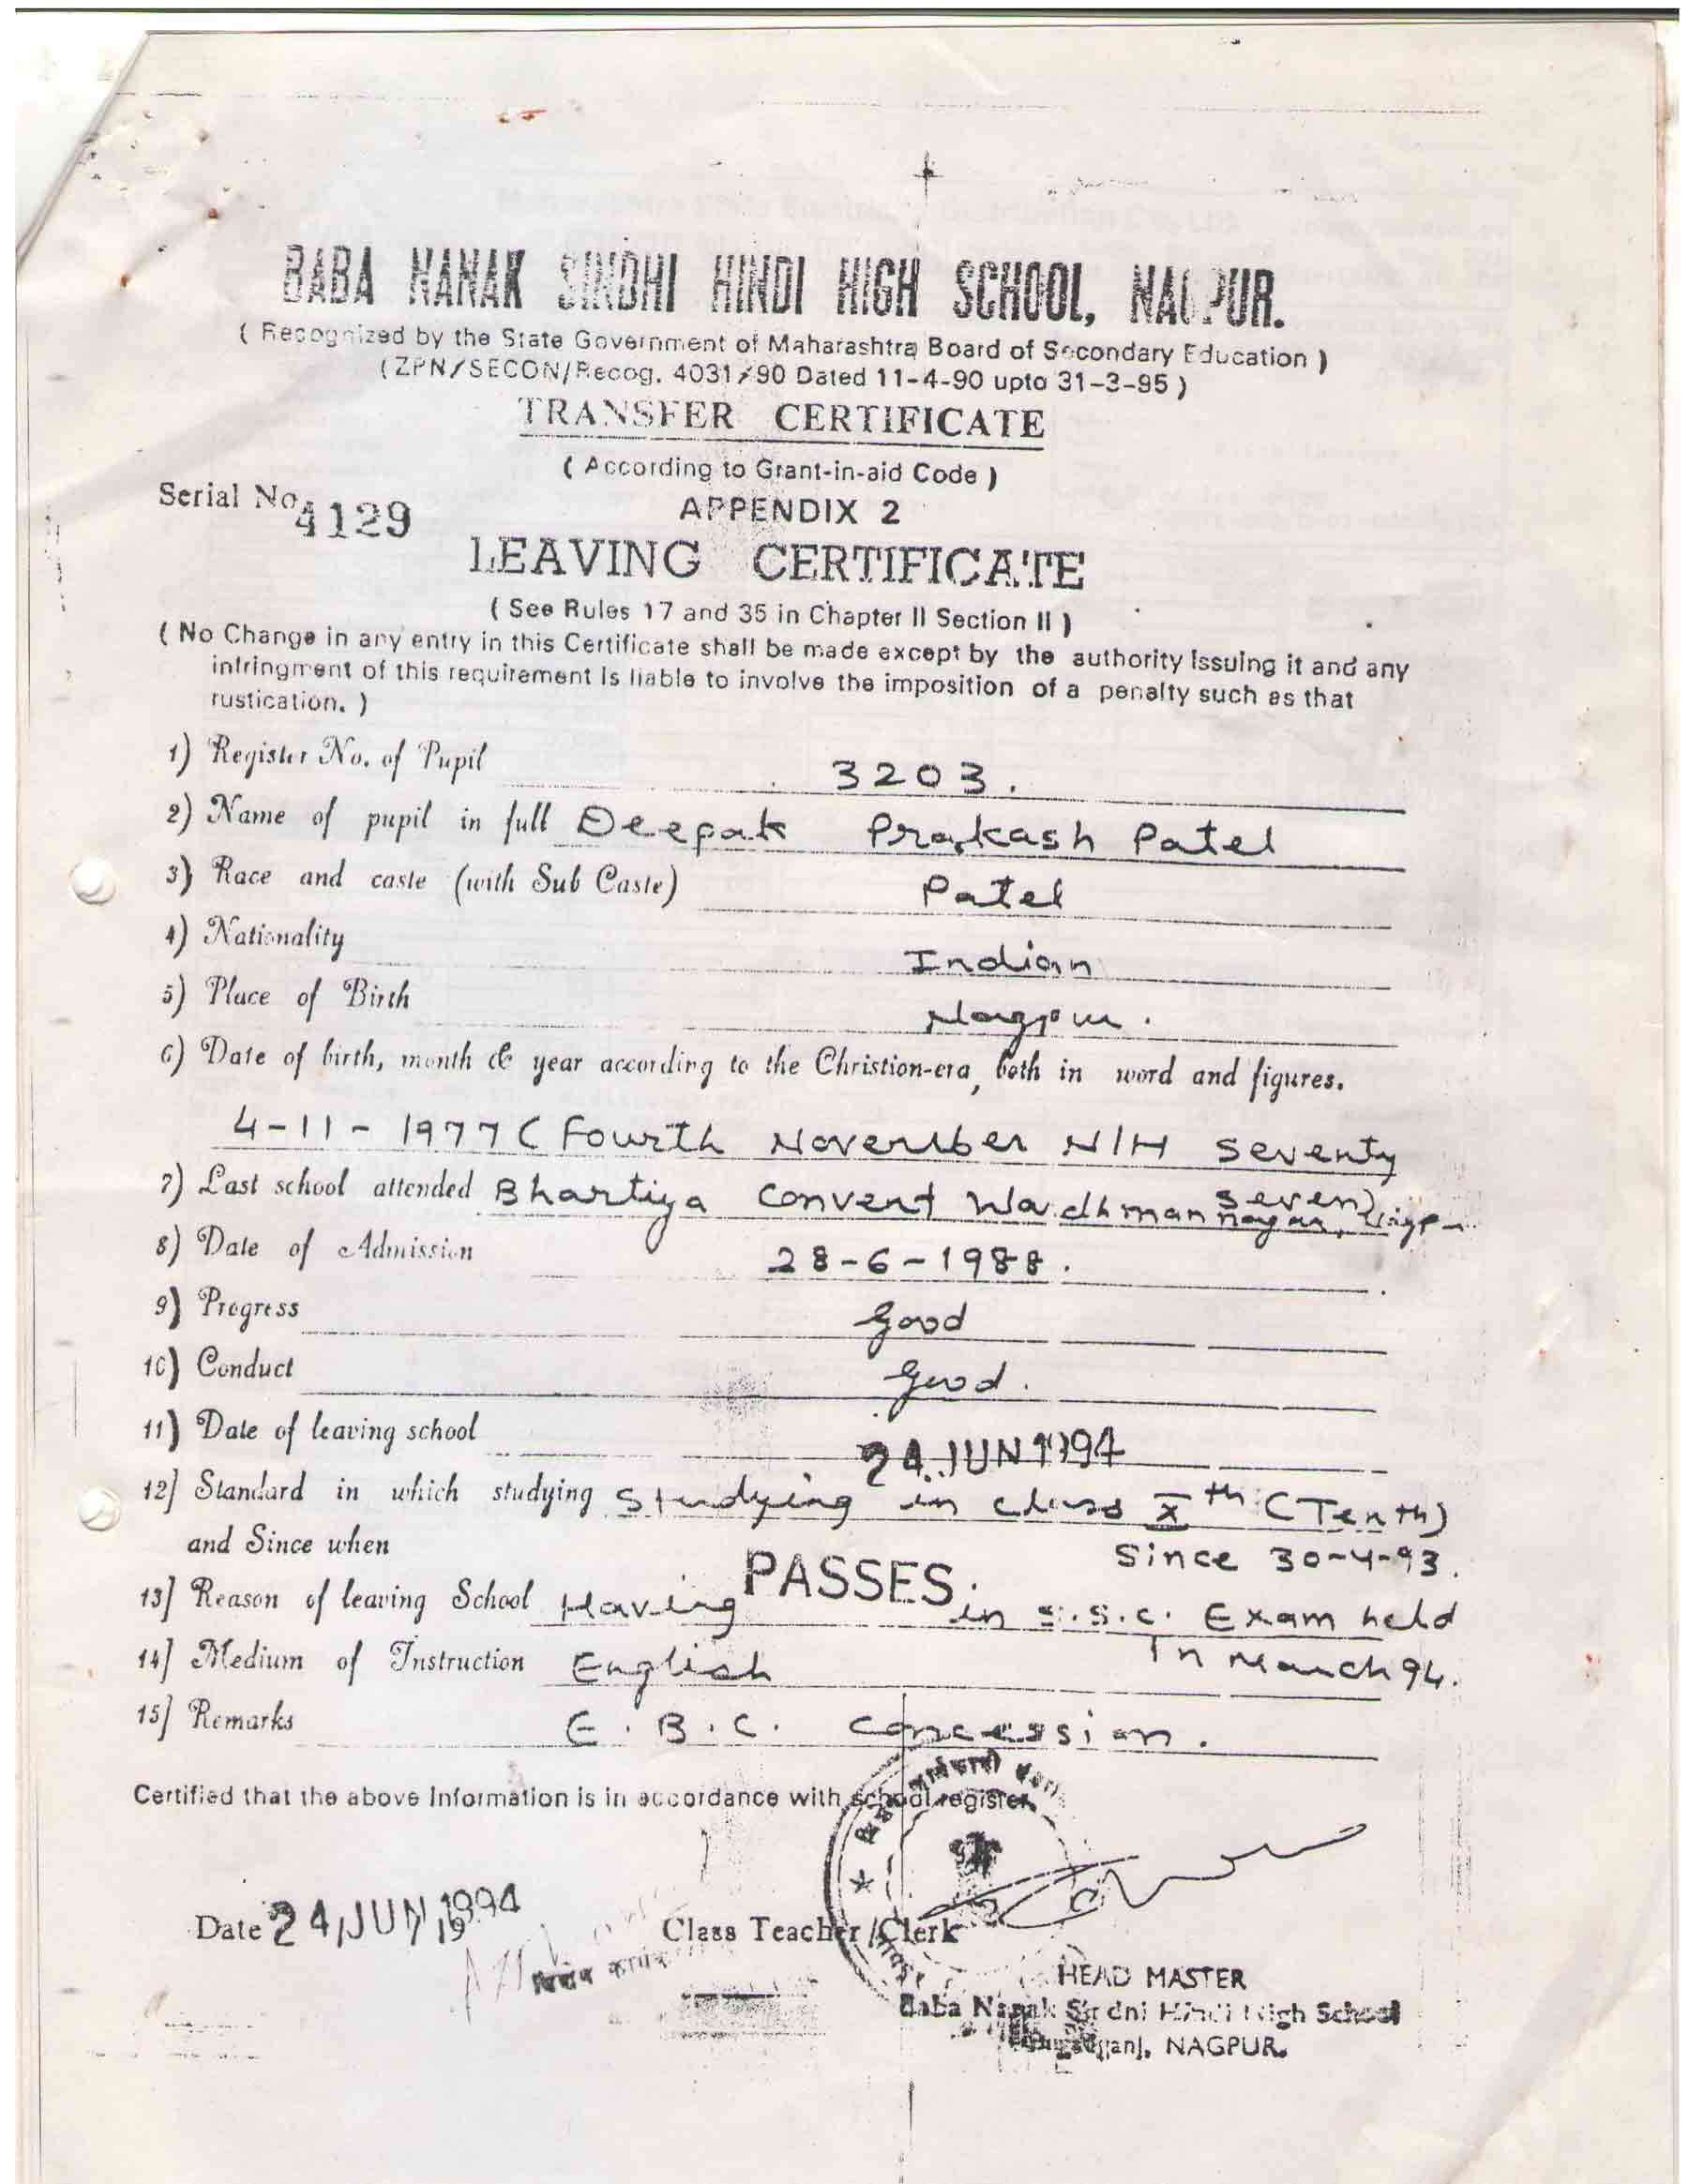 BABA NANAK SINDHI HINDI HIGH SCHOOL, NAGPUR.
( Recognized by the State Government of Maharashtra Board of Secondary Education )
( ZPN/SECON/Recog. 4031/90 Dated 11-4-90 upto 31-3-95 )
TRANSFER CERTIFICATE
( According to Grant-in-aid Code )
Serial No. 4129
APPENDIX 2
LEAVING CERTIFICATE
( See Rules 17 and 35 in Chapter II Section II )
( No Change in any entry in this Certificate shall be made except by the authority issuing it and any
infringment of this requirement is liable to involve the imposition of a penalty such as that
rustication. )
1) Register No. of Pupil 3203.
2) Name of pupil in full Deepak Prakash Patel
3) Race and caste (with Sub Caste) Patel
4) Nationality Indian
5) Place of Birth Nagpur.
6) Date of birth, month & year according to the Christion-era, both in word and figures.
4-11-1977 ( Fourth November N/H Seventy
Seven)
7) Last school attended Bhartiya Convent Wardhman nagar, Nagpur
8) Date of Admission 28-6-1988.
9) Progress Good
10) Conduct Good.
11) Date of leaving school 24 JUN 1994
12] Standard in which studying Studying in class Xth (Tenth)
and Since when Since 30-4-93.
13] Reason of leaving School Having PASSES. in S.S.C. Exam held
In March 94.
14] Medium of Instruction English
15] Remarks E.B.C. Concession.
Certified that the above Information is in accordance with school register.
Date 24 JUN 1994
Class Teacher/Clerk
HEAD MASTER
Baba Nanak Sindhi Hindi High School
NAGPUR.